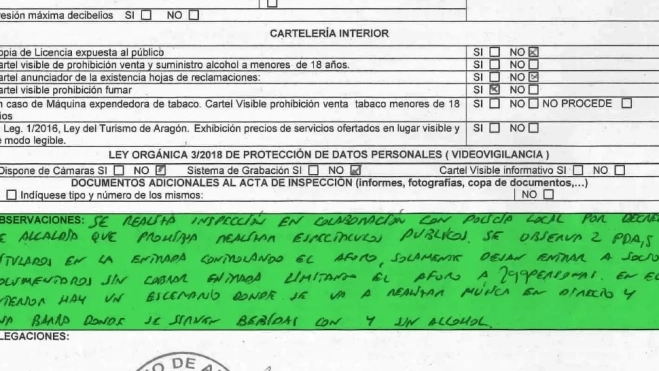 resión máxima decibelios SI NO
CARTELERÍA INTERIOR
opia de Licencia expuesta al público SI NO
artel visible de prohibición venta y suministro alcohol a menores de 18 años. SI NO
artel anunciador de la existencia hojas de reclamaciones: SI NO
artel visible prohibición fumar SI NO
n caso de Máquina expendedora de tabaco. Cartel Visible prohibición venta tabaco menores de 18 SI NO NO PROCEDE
ños
. Leg. 1/2016, Ley del Turismo de Aragón. Exhibición precios de servicios ofertados en lugar visible y SI NO
e modo legible.
LEY ORGÁNICA 3/2018 DE PROTECCIÓN DE DATOS PERSONALES ( VIDEOVIGILANCIA )
Dispone de Cámaras SI NO Sistema de Grabación SI NO Cartel Visible informativo SI NO
DOCUMENTOS ADICIONALES AL ACTA DE INSPECCIÓN (informes, fotografías, copa de documentos,...)
Indíquese tipo y número de los mismos: NO
BSERVACIONES: SE REALIZA INSPECCIÓN EN COLABORACIÓN CON POLICÍA LOCAL POR DECRE
E ALCALDÍA QUE PROHIBIA REALIZAR ESPECTÁCULOS PUBLICOS. SE OBSERVA 2 PDA,S
TITULADOS EN LA ENTRADA CONTROLANDO EL AFORO, SOLAMENTE DEJAN ENTRAR A SOCIO
OCUMENTADOS SIN COBRAR ENTRADA LIMITANDO EL AFORO A 299 PERSONAS. EN EL
NTERIOR HAY UN ESCENARIO DONDE SE VA A REALIZAR MÚSICA EN DIRECTO Y
NA BARRA DONDE SE SIRVEN BEBIDAS CON Y SIN ALCOHOL.
LEGACIONES:
O DE A